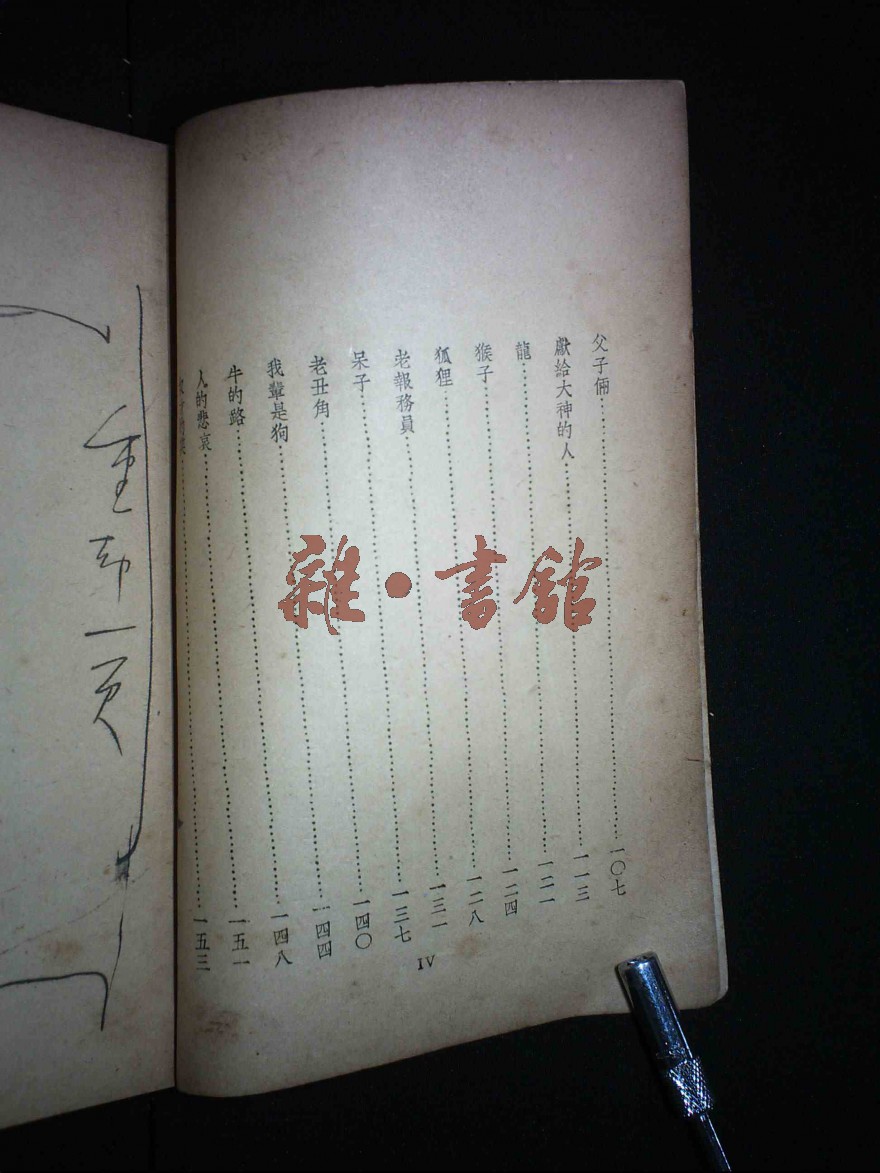 父子倆……一〇七
獻給大神的人……一一三
龍……一二一
猴子……一二四
狐狸……一二八
老報務員……一三一
呆子……一三七
老丑角……一四〇
我輩是狗……一四四
牛的路……一四八
人的悲哀……一五一
一五三
IV
雜·書館
一頁